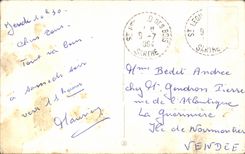 Jeudi 10h30
Chers tous.
Tout va bien
à samedi soir
vers 11 heures
Maurice
ST LEONARD DES BOIS
9-7
SARTHE
ST LEON
9
SARTHE
Mme Bédet Andrée
chez Mr Gendron Pierre
rue de l'Atlantique
La Guérinière
Ile de Noirmoutier
VENDÉE